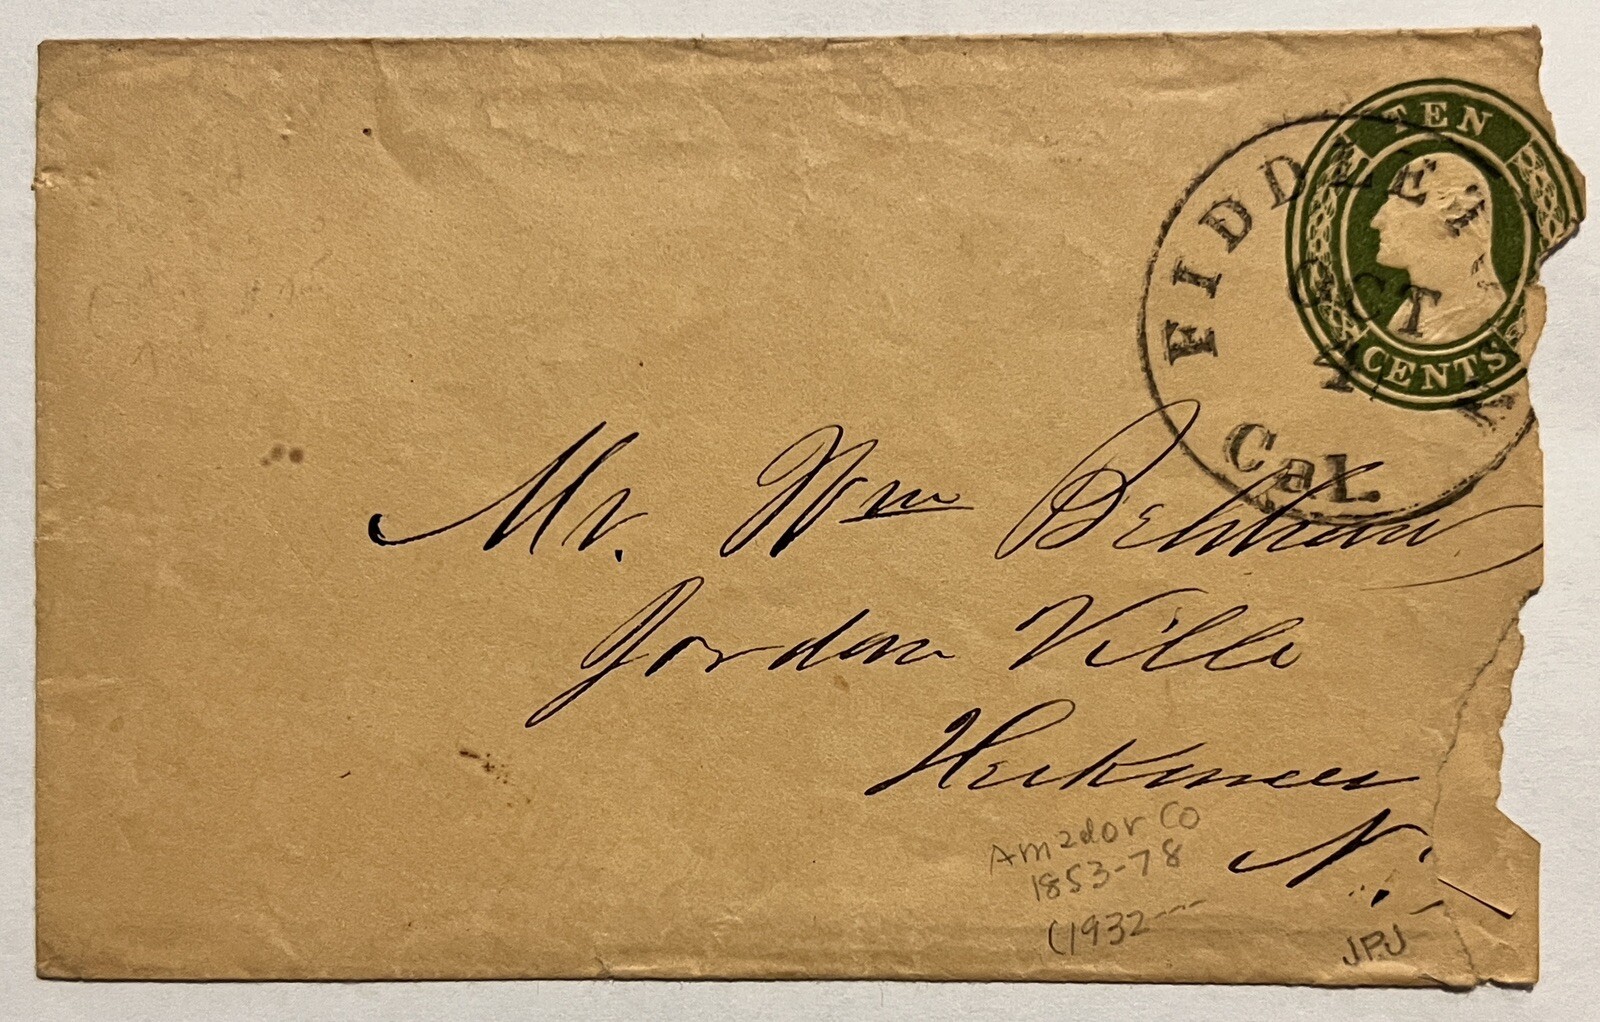 TEN
CENTS
FIDDLET
OCT
Cal.
Mr. Wm
Jordan Ville
Herkimer
N.
Amador Co
1853-78
(1932---
JPJ